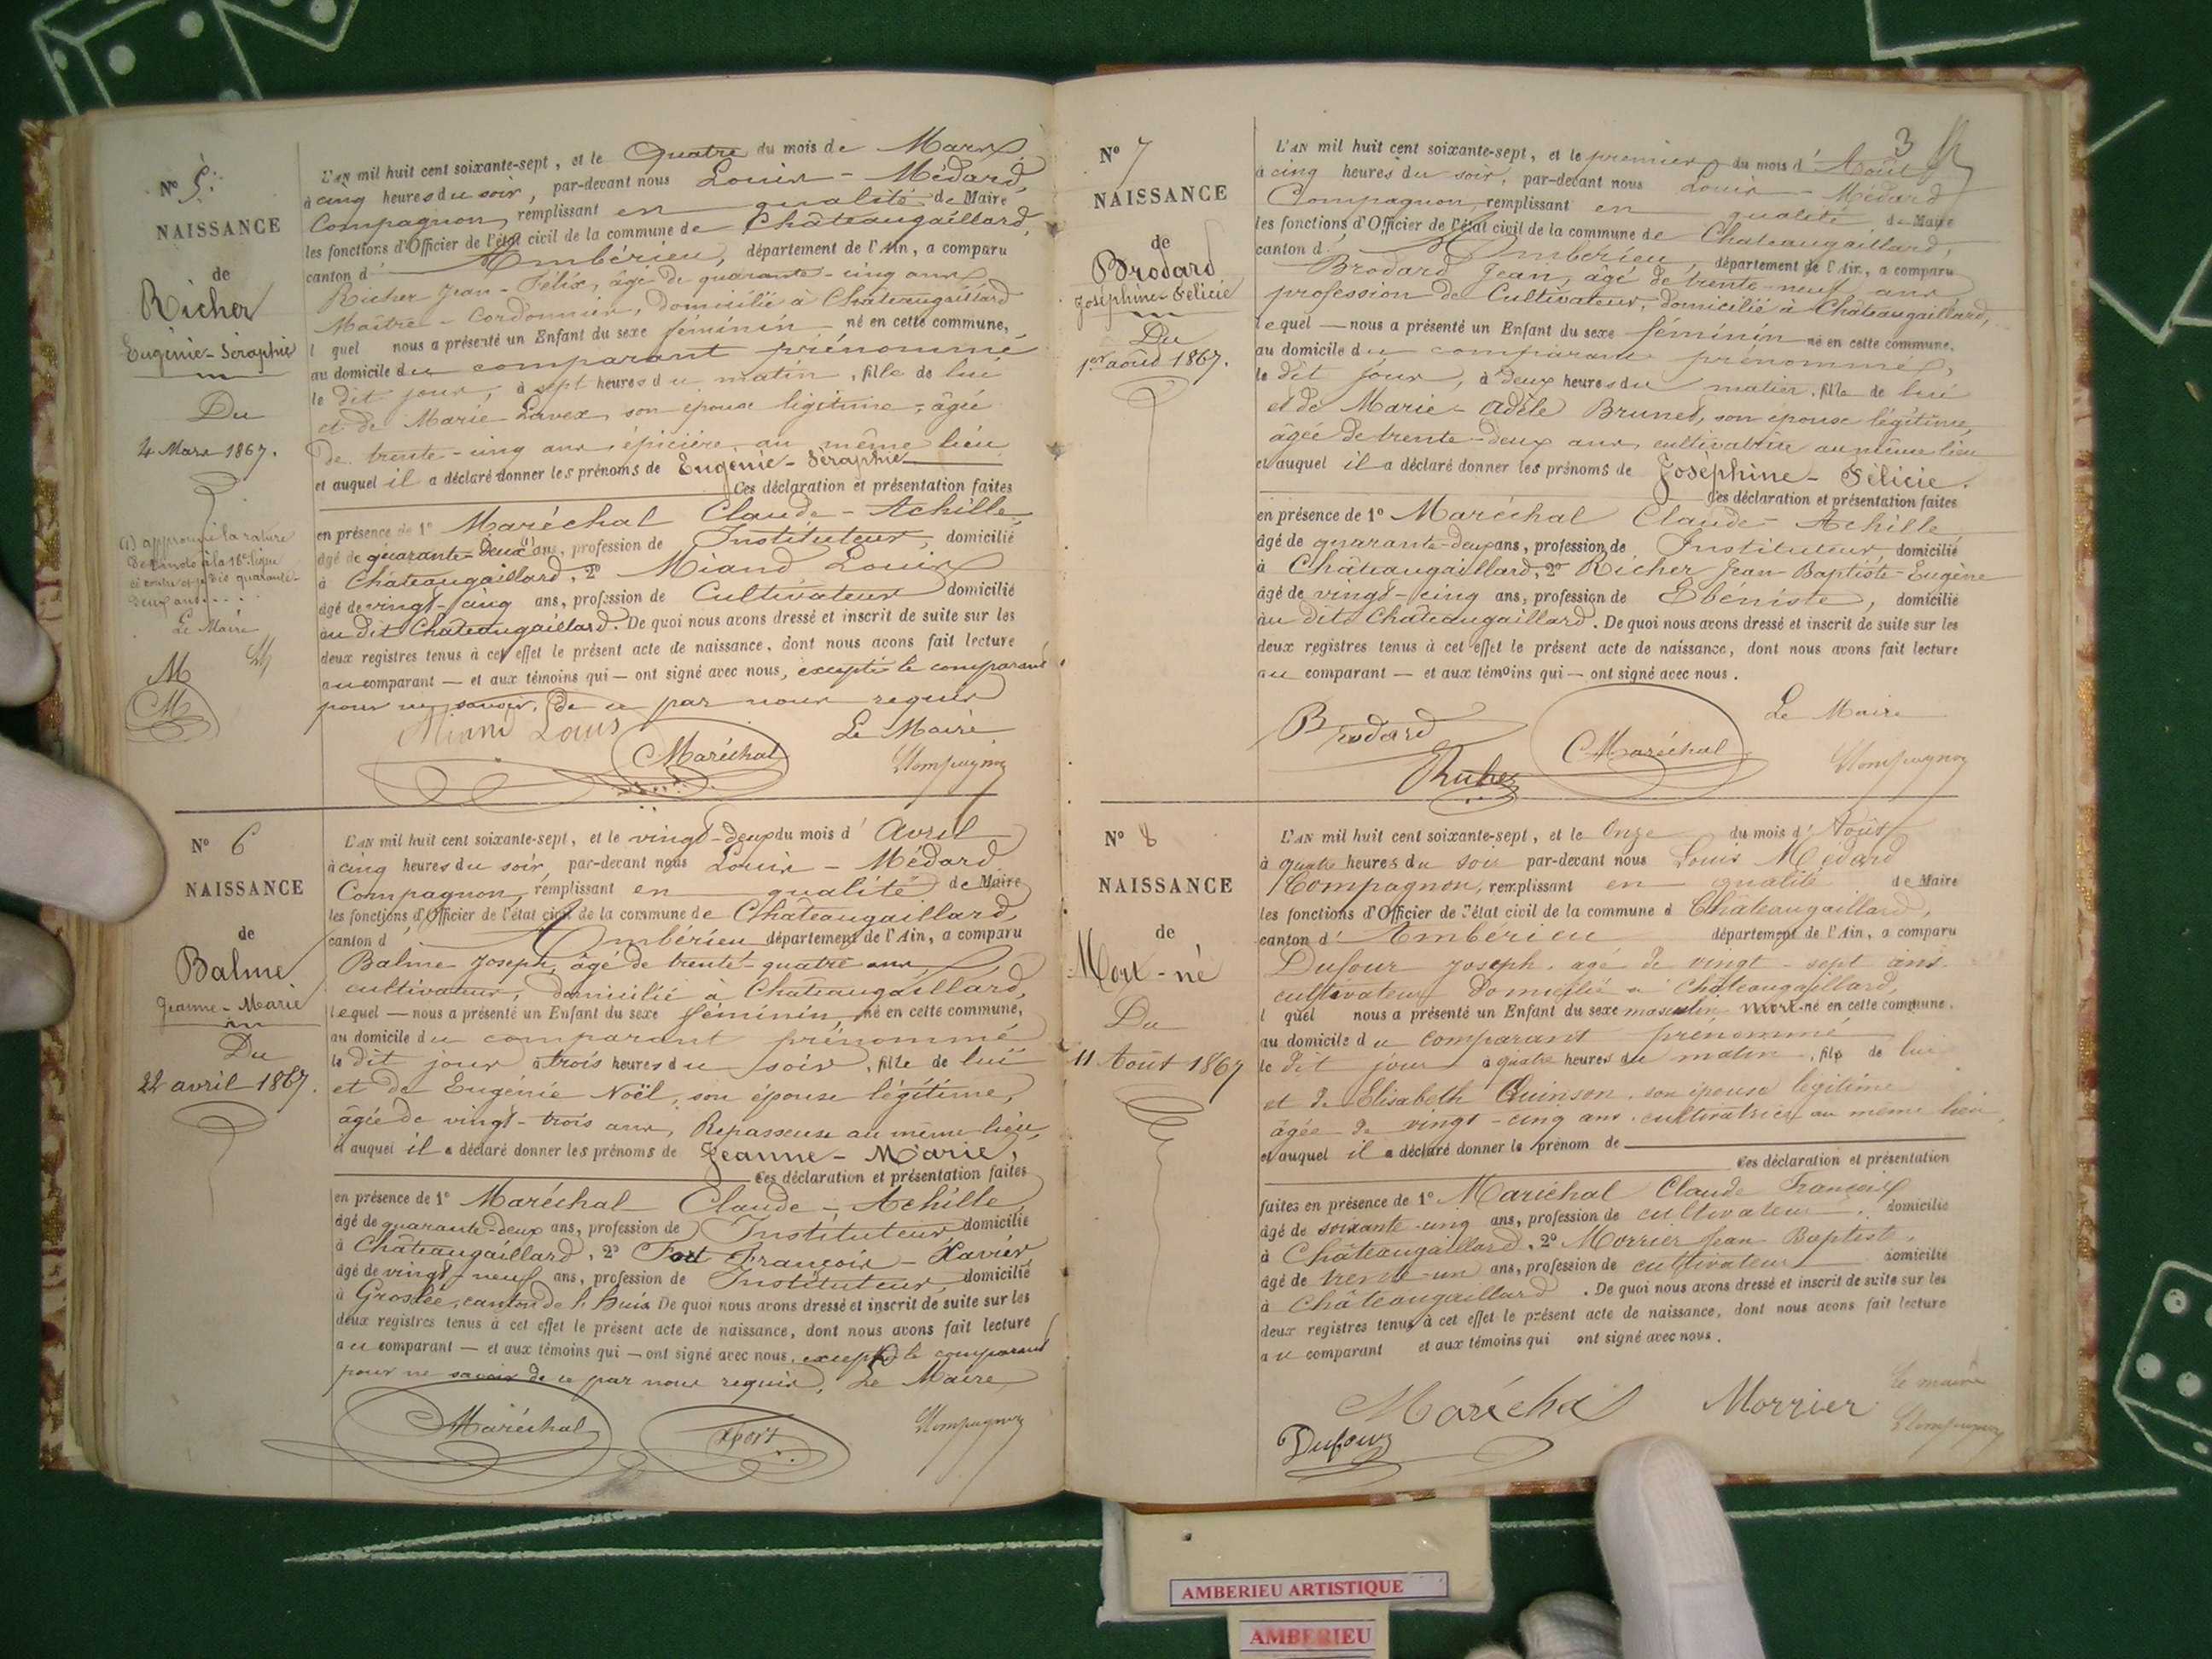 N° 5.
NAISSANCE
de
Richer
Eugénie-Séraphie
Du
4 Mars 1867.
(1) approuvé la rature
de un mot à la 16e ligne
ci contre et dis quarante-
deux ans....
Le Maire
M
M
L'AN mil huit cent soixante-sept, et le Quatre du mois de Mars
à cinq heures du soir, par-devant nous Louis-Médard,
Compagnon, remplissant en qualité de Maire
les fonctions d'Officier de l'état civil de la commune de Châteaugaillard,
canton d' Ambérieu, département de l'Ain, a comparu
Richer Jean-Félix, âgé de quarante-cinq ans
Maître-Cordonnier, domicilié à Châteaugaillard
l quel nous a présenté un Enfant du sexe féminin né en cette commune,
au domicile du comparant prénommé
le dit jour, à sept heures du matin, fille de lui
et de Marie Lavex, son épouse légitime, âgée
de trente-cinq ans, épicière au même lieu
et auquel il a déclaré donner les prénoms de Eugénie-Séraphie
Ces déclaration et présentation faites
en présence de 1° Maréchal Claude-Achille
âgé de quarante-deux ans, profession de Instituteur, domicilié
à Châteaugaillard, 2° Miand Louis
âgé de vingt-cinq ans, profession de Cultivateur domicilié
au dit Châteaugaillard. De quoi nous avons dressé et inscrit de suite sur les
deux registres tenus à cet effet le présent acte de naissance, dont nous avons fait lecture
au comparant — et aux témoins qui — ont signé avec nous, excepté le comparant
pour ne savoir, de ce par nous requis
Miand Louis
Maréchal
Le Maire
LCompagnon
N° 6
NAISSANCE
de
Balme
Jeanne-Marie
Du
22 avril 1867.
L'AN mil huit cent soixante-sept, et le vingt-deux du mois d' Avril
à cinq heures du soir, par-devant nous Louis-Médard
Compagnon, remplissant en qualité de Maire
les fonctions d'Officier de l'état civil de la commune de Châteaugaillard,
canton d' Ambérieu département de l'Ain, a comparu
Balme Joseph, âgé de trente-quatre ans
cultivateur, domicilié à Châteaugaillard,
lequel — nous a présenté un Enfant du sexe féminin, né en cette commune,
au domicile du comparant prénommé
le dit jour à trois heures du soir, fille de lui
et de Eugénie Noël, son épouse légitime,
âgée de vingt-trois ans, Repasseuse au même lieu,
et auquel il a déclaré donner les prénoms de Jeanne-Marie,
Ces déclaration et présentation faites
en présence de 1° Maréchal Claude-Achille
âgé de quarante-deux ans, profession de Instituteur, domicilié
à Châteaugaillard, 2° Fort François-Xavier
âgé de vingt-neuf ans, profession de Instituteur, domicilié
à Groslée, canton de l'huis De quoi nous avons dressé et inscrit de suite sur les
deux registres tenus à cet effet le présent acte de naissance, dont nous avons fait lecture
au comparant — et aux témoins qui — ont signé avec nous, excepté le comparant
pour ne savoir de ce par nous requis. Le Maire
Maréchal
Xfort
LCompagnon
3
N° 7
NAISSANCE
de
Brodard
Joséphine-Félicie
Du
1er août 1867.
L'AN mil huit cent soixante-sept, et le premier du mois d' Août
à cinq heures du soir, par-devant nous Louis-Médard
Compagnon, remplissant en qualité de Maire
les fonctions d'Officier de l'état civil de la commune de Châteaugaillard,
canton d' Ambérieu, département de l'Ain, a comparu
Brodard Jean, âgé de trente-neuf ans
profession de Cultivateur, domicilié à Châteaugaillard,
lequel — nous a présenté un Enfant du sexe féminin né en cette commune,
au domicile du comparant prénommé,
le dit jour, à deux heures du matin, fille de lui
et de Marie-Adèle Brunet, son épouse légitime,
âgée de trente-deux ans, cultivatrice au même lieu
et auquel il a déclaré donner les prénoms de Joséphine-Félicie.
Ces déclaration et présentation faites
en présence de 1° Maréchal Claude-Achille
âgé de quarante-deux ans, profession de Instituteur, domicilié
à Châteaugaillard, 2° Richer Jean-Baptiste-Eugène
âgé de vingt-cinq ans, profession de Ebéniste, domicilié
au dit Châteaugaillard. De quoi nous avons dressé et inscrit de suite sur les
deux registres tenus à cet effet le présent acte de naissance, dont nous avons fait lecture
au comparant — et aux témoins qui — ont signé avec nous.
Brodard
Maréchal
Le Maire
Richer
LCompagnon
N° 8
NAISSANCE
de
Mort-né
Du
11 Août 1867
L'AN mil huit cent soixante-sept, et le Onze du mois d' Août
à quatre heures du soir par-devant nous Louis Médard
Compagnon, remplissant en qualité de Maire
les fonctions d'Officier de l'état civil de la commune d Châteaugaillard,
canton d' Ambérieu département de l'Ain, a comparu
Dufour Joseph, agé de vingt-sept ans
cultivateur domicilié à Châteaugaillard,
l quel nous a présenté un Enfant du sexe masculin mort-né en cette commune,
au domicile du comparant prénommé
le dit jour à quatre heures du matin, fils de lui
et de Elisabeth Quinson, son épouse légitime
âgée de vingt-cinq ans, cultivatrice au même lieu,
et auquel il a déclaré donner le prénom de
Ces déclaration et présentation
faites en présence de 1° Maréchal Claude François
âgé de soixante-cinq ans, profession de cultivateur, domicilié
à Châteaugaillard, 2° Morrier Jean Baptiste,
âgé de trente-un ans, profession de cultivateur domicilié
à Châteaugaillard. De quoi nous avons dressé et inscrit de suite sur les
deux registres tenus à cet effet le présent acte de naissance, dont nous avons fait lecture
au comparant et aux témoins qui ont signé avec nous.
Maréchal
Morrier
Le maire
LCompagnon
Dufour
AMBERIEU ARTISTIQUE
AMBERIEU